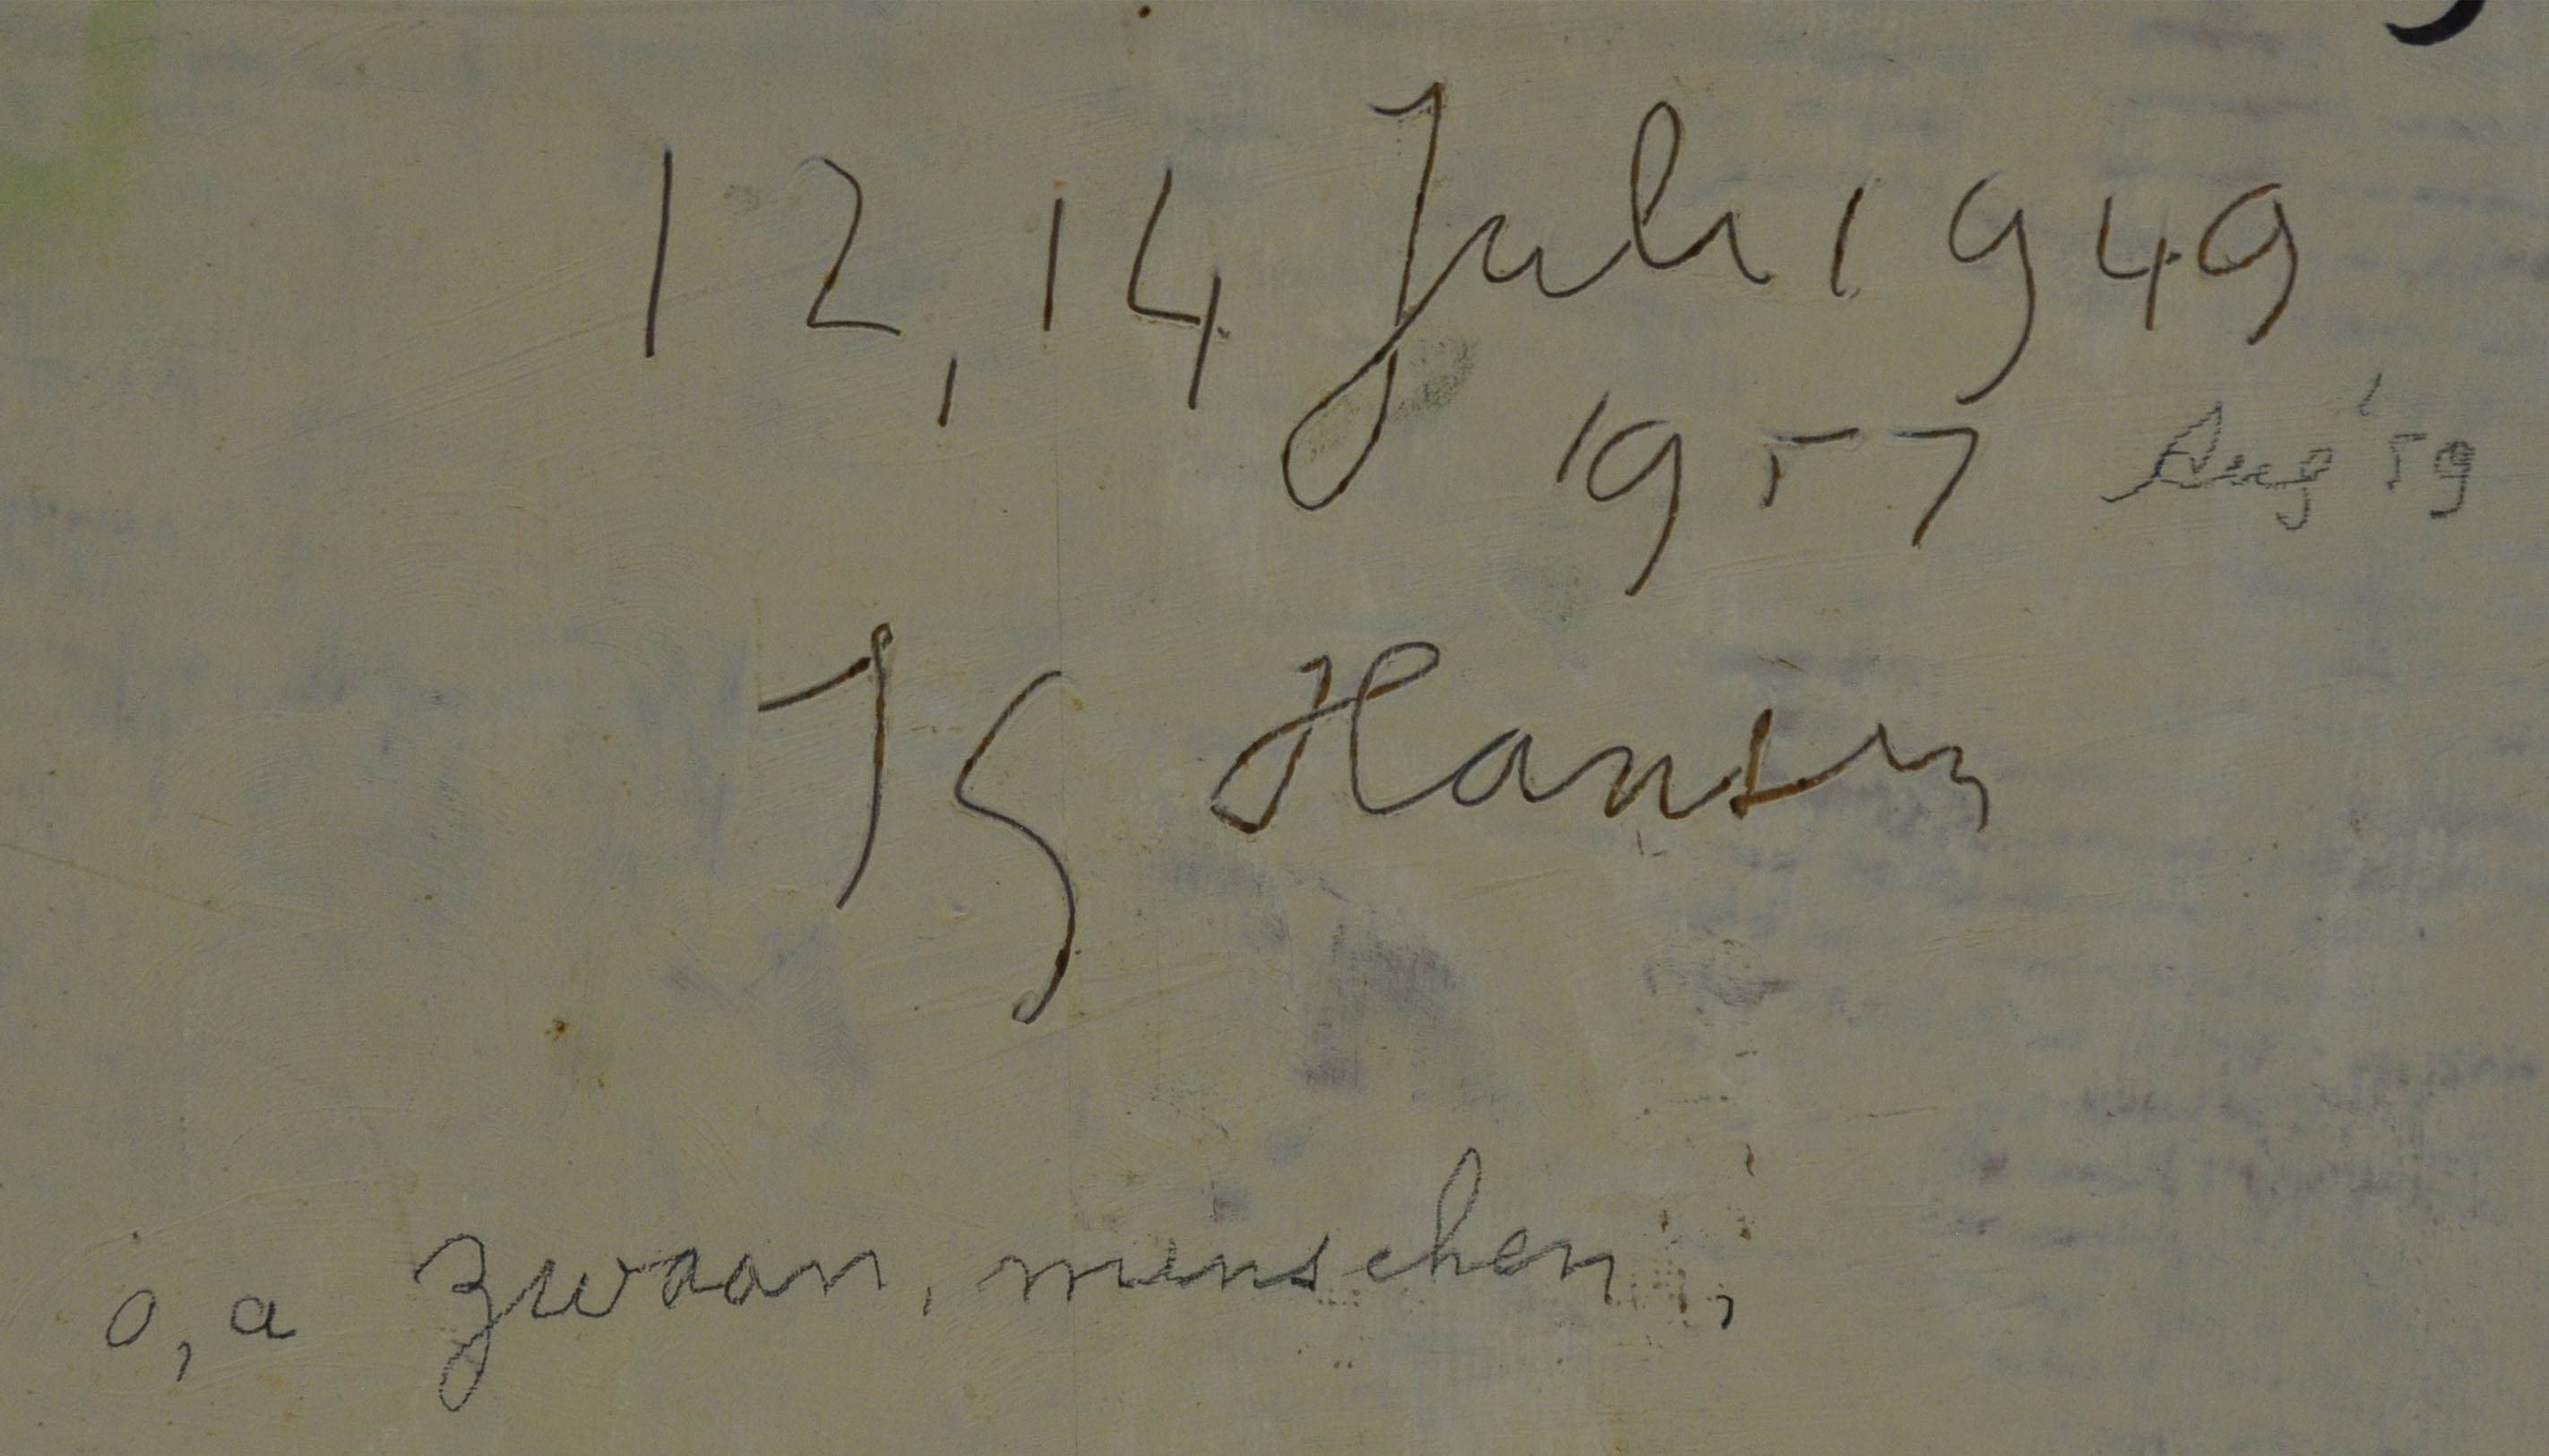 12, 14 Juli 1949
1957 Aug '59
Js Hansen
o, a zwaan, menschen,